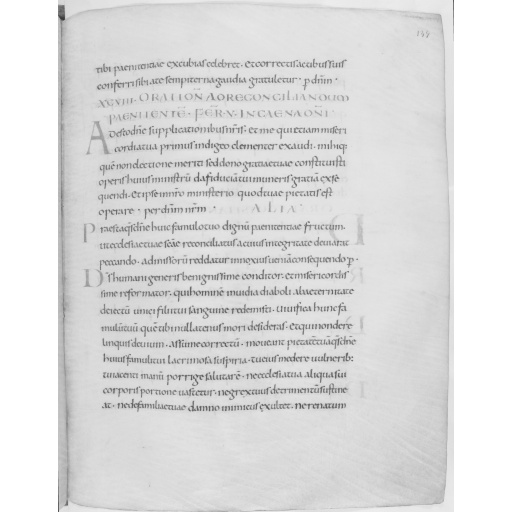 tibi paenitentiae excubias celebret · et correctis actibus suis
conferri sibi a te sempiterna gaudia gratuletur · p dnm ·
XCVIII · ORATION AD RECONCILIANDUM
PAENITENTE · FER · V · IN CAENA DNI
Adesto dne supplicationibus nris · et me qui etiam miseri
cordia tua primus indigeo clementer exaudi · mihiq;
que non electione meriti sed dono gratiae tuae constituisti
operis huius ministru da fiducia tui muneris gratia exse
quendi · et ipse in nro ministerio quod tuae pietatis est
operare · per dnm nrm · ALIA
Praesta qs dne huic famulo tuo dignu paenitentiae fructum ·
ut ecclesiae tuae scae reconciliatus a cuius integritate deviarat
peccando · admissoru reddatur innoxius veniam consequendo p ·
Ds humani generis benignissime conditor · et misericordis
sime reformator · qui homine invidia diaboli ab aeternitate
deiectu unici filii tui sanguine redemisti · vivifica hunc fa
mulu tuu que tibi nullatenus mori desideras · et qui non dere
linquis devium · assume correctu · moveant pietate tua qs dne
huius famuli tui lacrimosa suspiria · tu eius medere vulnerib;
tu iacenti manu porrige salutare · ne ecclesia tua aliqua sui
corporis portione vastetur · ne grex tuus detrimentu sustine
at · ne de familiae tuae damno inimicus exultet · ne renatum